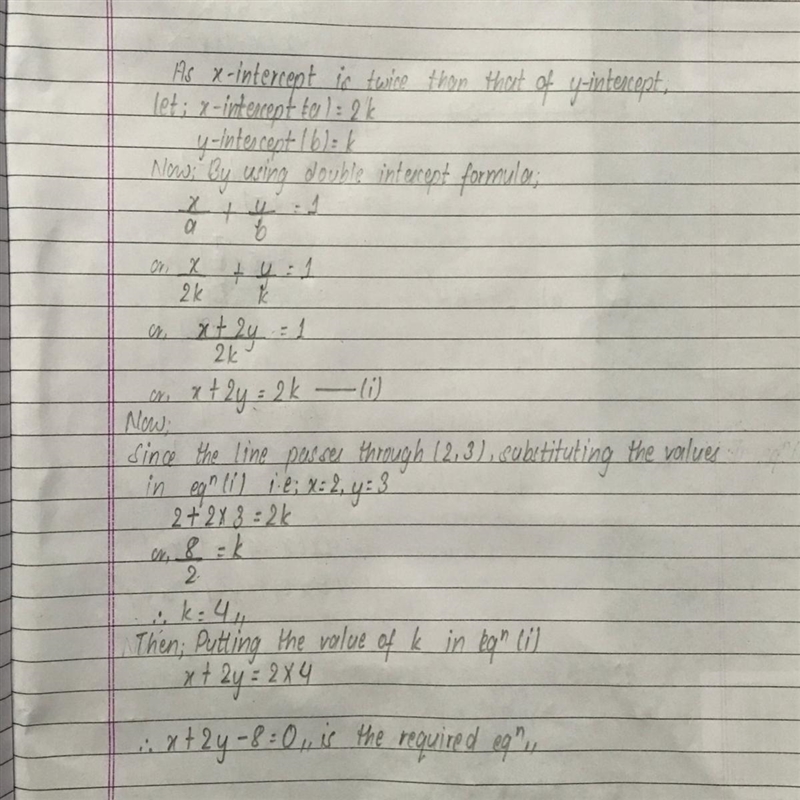 As x-intercept is twice than that of y-intercept,
let; x-intercept (a) = 2k
y-intercept (b) = k
Now; By using double intercept formula;
x/a + y/b = 1
or, x/2k + y/k = 1
or, (x + 2y)/2k = 1
or, x + 2y = 2k —— (i)
Now;
Since the line passes through (2,3), substituting the values
in eqⁿ (i) i.e; x = 2, y = 3
2 + 2 × 3 = 2k
or, 8/2 = k
∴ k = 4,,
Then; Putting the value of k in eqⁿ (i)
x + 2y = 2 × 4
∴ x + 2y - 8 = 0,, is the required eqⁿ,,